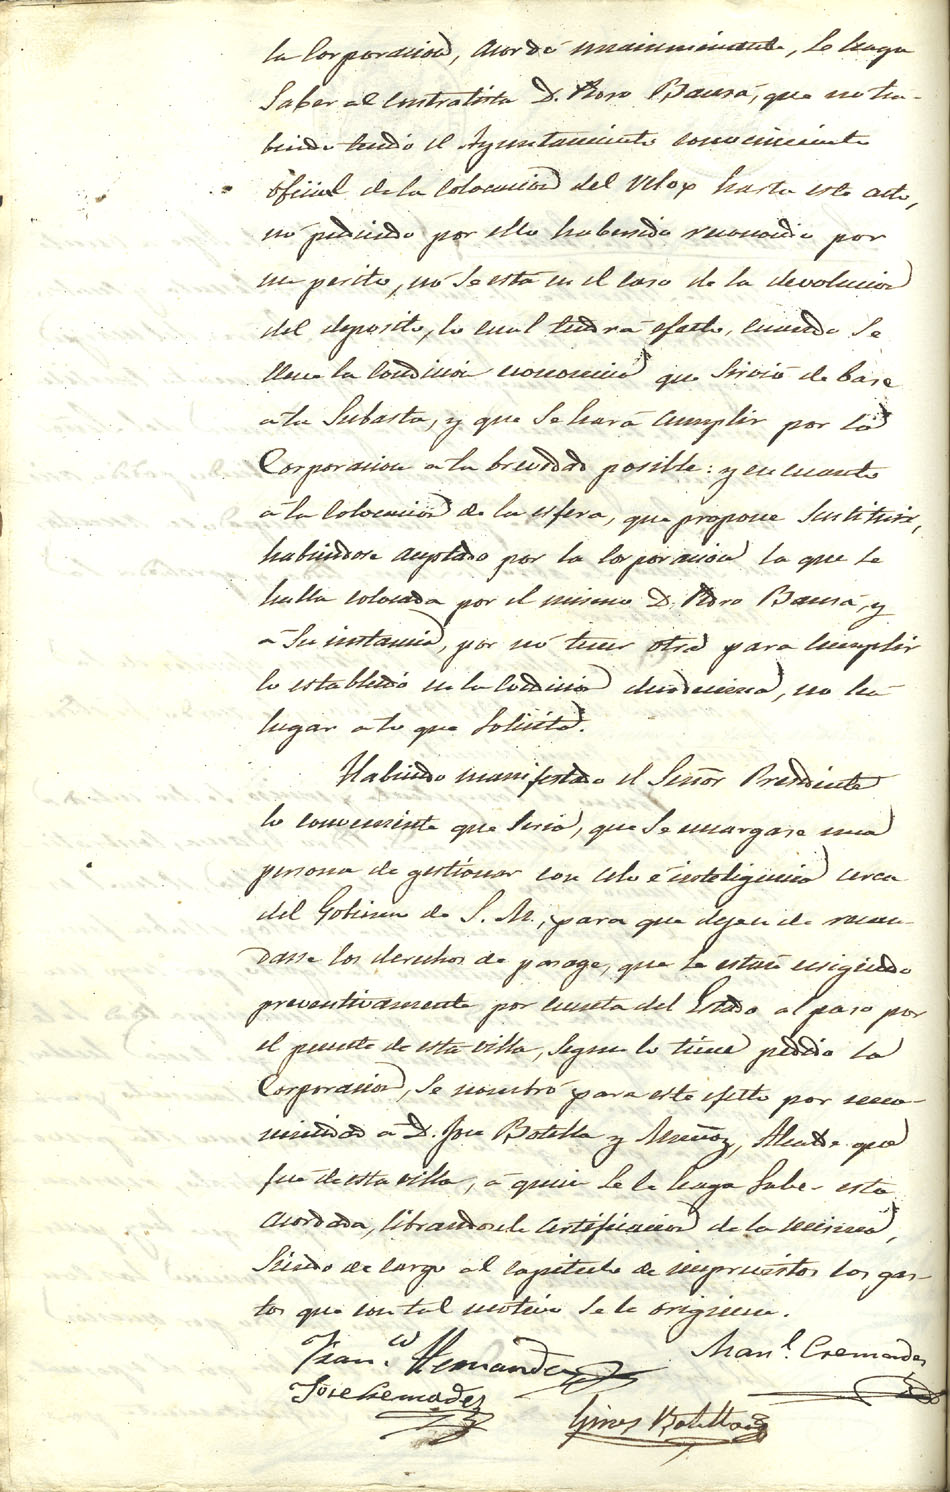 la Corporacion, acordó unanimemente, se haga
saber al contratista D. Pedro Bausá, que no ha-
biendo tenido el Ayuntamiento conocimiento
oficial de la colocacion del relox hasta este acto,
ni pudiendo por ello haber sido reconocido por
un perito, no se está en el caso de la devolucion
del deposito, lo cual tendrá efecto, cuando se
llene la condicion economica que sirvió de base
a la subasta, y que se hará cumplir por la
Corporacion a la brevedad posible: y en cuanto
á la colocacion de la esfera, que propone sustituir,
habiendose aceptado por la Corporacion la que se
halla colocada por el mismo D. Pedro Bausá, y
á su instancia, por no tener otra para cumplir
lo establecido en la condicion duodecima, no há
lugar a lo que solicita.
Habiendo manifestado el Señor Presidente
lo conveniente que seria, que se encargase una
persona de gestionar con celo é inteligencia cerca
del Gobierno de S. M., para que dejen de recau-
darse los derechos de pasage, que se están exigiendo
preventivamente por cuenta del Estado al paso por
el puente de esta villa, segun lo tiene pedido la
Corporacion, se nombró para este efecto por una-
nimidad á D. Jose Botella y Muñoz, Alcalde que
fué de esta villa, á quien se le haga saber esta
acordada, librandosele certificacion de la misma,
siendo de cargo al capitulo de imprevistos los gas-
tos que con tal motivo se le originen.
Fran.co Hernandez
Man.l Cremades
Jose Cremades
Gines Botella